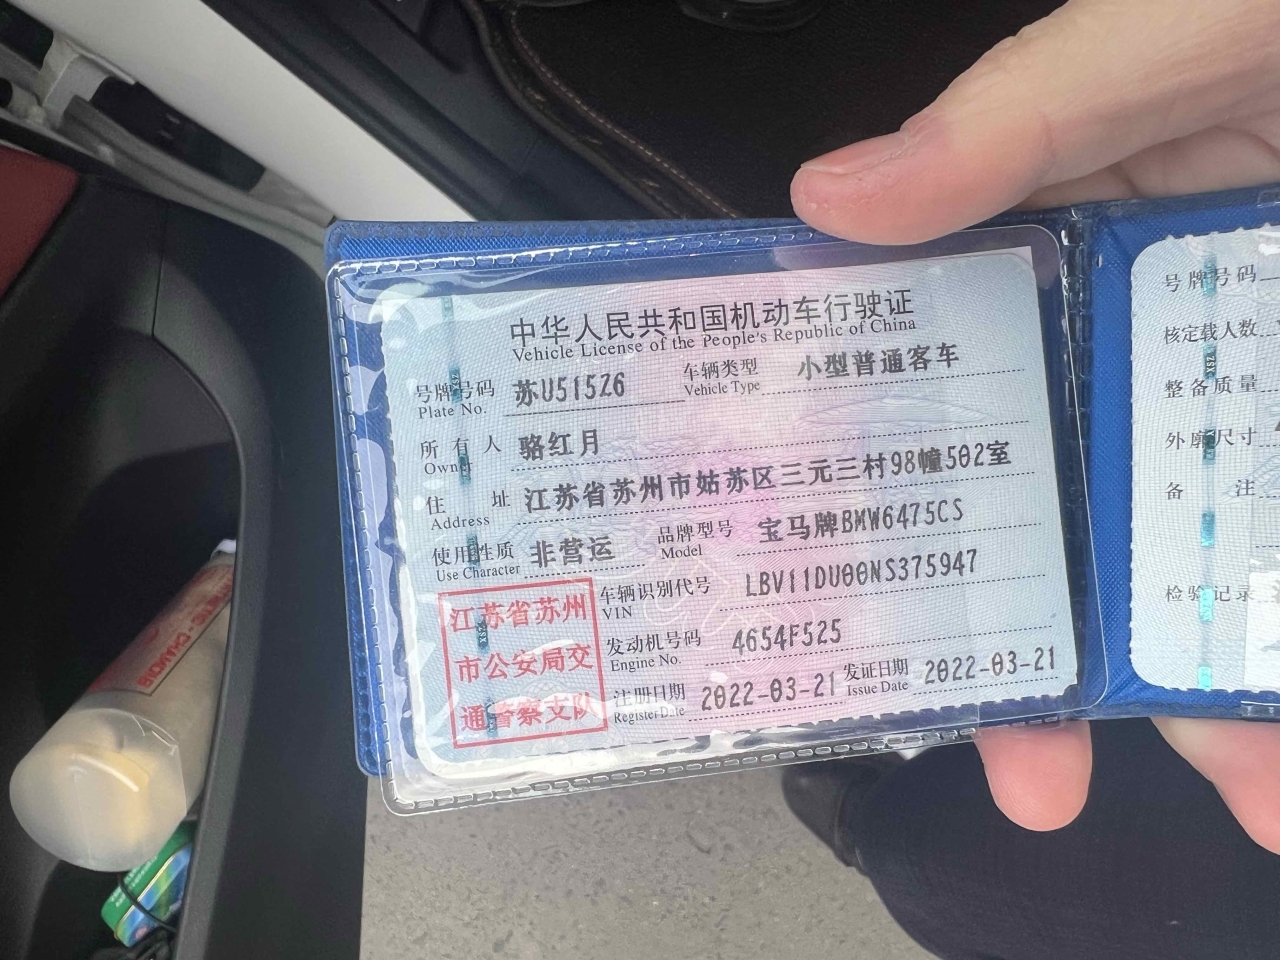 中华人民共和国机动车行驶证
Vehicle License of the People's Republic of China
号牌号码 苏U515Z6 车辆类型 小型普通客车
Plate No. Vehicle Type
所有人 骆红月
Owner
住址 江苏省苏州市姑苏区三元三村98幢502室
Address
使用性质 非营运 品牌型号 宝马牌BMW6475CS
Use Character Model
江苏省苏州
市公安局交
通警察支队
车辆识别代号 LBV11DU00NS375947
VIN
发动机号码 4654F525
Engine No.
注册日期 2022-03-21 发证日期 2022-03-21
Register Date Issue Date
号牌号码
核定载人数
整备质量
外廓尺寸
备注
检验记录
CHAMOIS